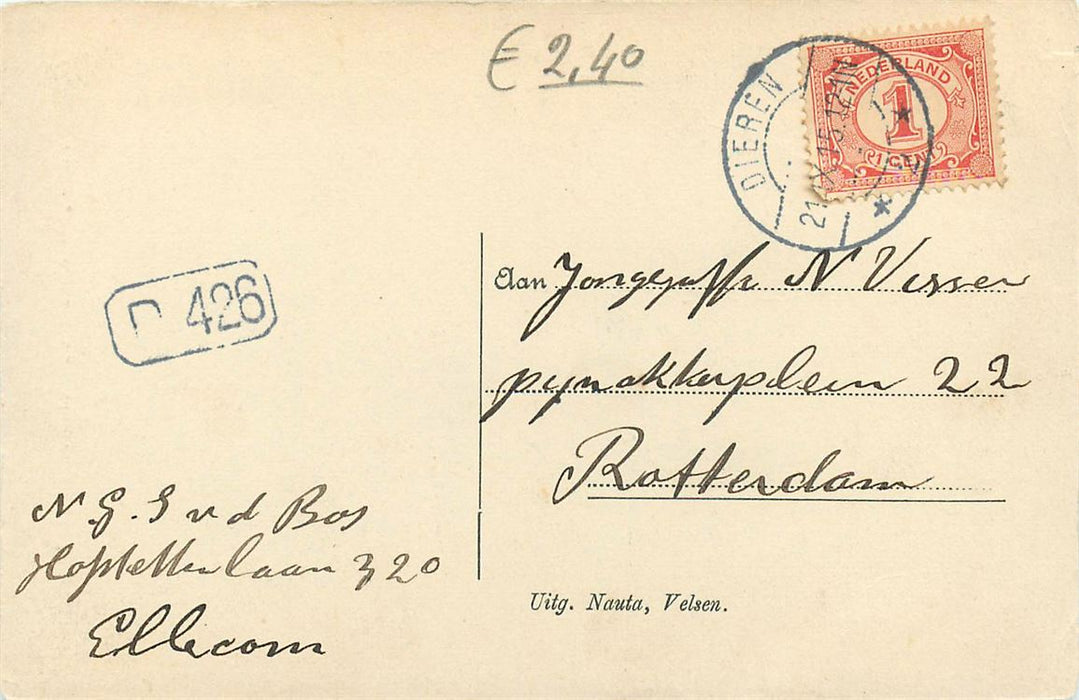 € 2,40
NEDERLAND
1
1 CENT
DIEREN
12-1N
426
Aan Jongejuffr N Visser
pijnakkerplein 22
Rotterdam
N. G. S v d Bos
laan 320
Ellecom
Uitg. Nauta, Velsen.